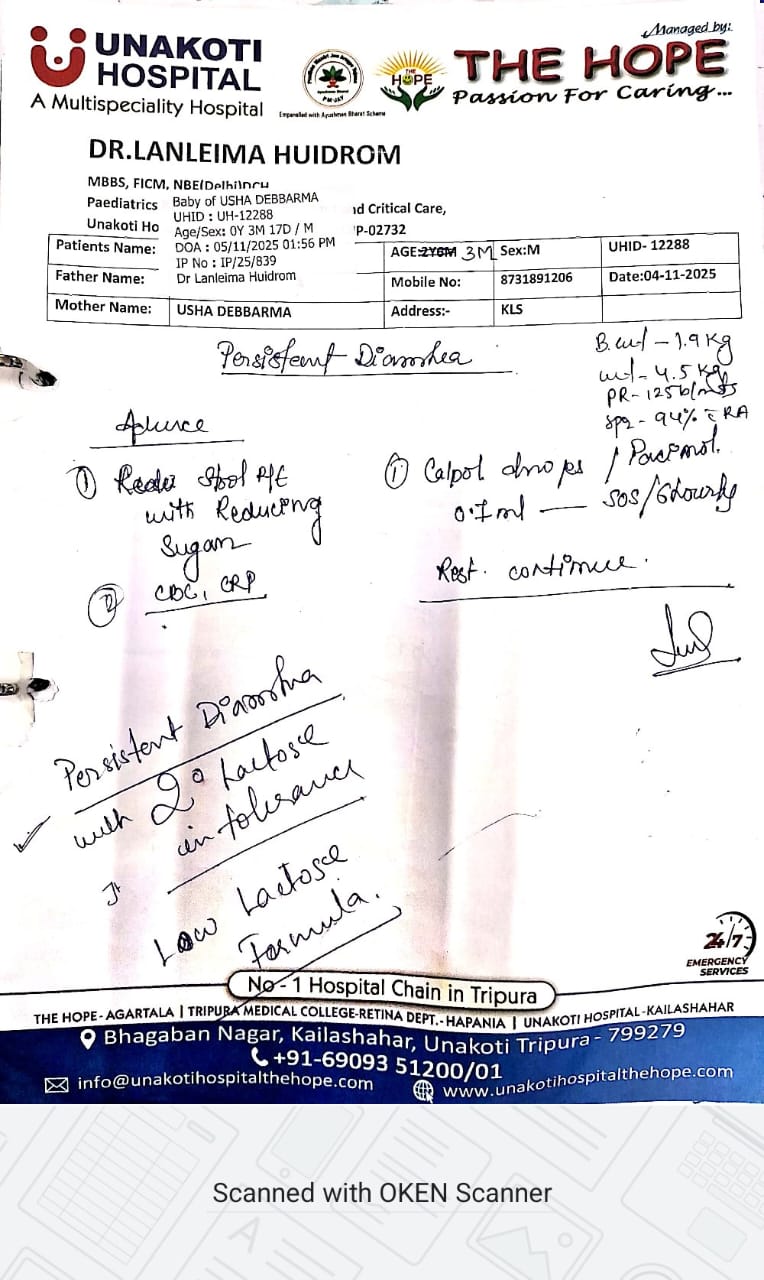 Managed by:
UNAKOTI
HOSPITAL
A Multispeciality Hospital
PM-JAY
Empanelled with Ayushman Bharat Scheme
THE HOPE
THE HOPE
Passion For Caring...
DR.LANLEIMA HUIDROM
MBBS, FICM, NBE(Delhi)
Paediatrics
nd Critical Care,
Unakoti Ho
P-02732
Baby of USHA DEBBARMA
UHID : UH-12288
Age/Sex: 0Y 3M 17D / M
DOA : 05/11/2025 01:56 PM
IP No : IP/25/839
Dr Lanleima Huidrom
Patients Name:
AGE: 3M
Sex:M
UHID- 12288
Father Name:
Mobile No:
8731891206
Date:04-11-2025
Mother Name:
USHA DEBBARMA
Address:-
KLS
Persistent Diarrhea
B.wt - 1.9 Kg
wt - 4.5 Kg
PR- 125 b/mts
94% c RA
Advice
① Stool R/E
with Reducing
Sugar
② CBC, CRP
① Calpol drops /
ml — SOS/6hourly
Rest. continue.
Persistent Diarrhea
with 2° Lactose
intolerance
Low Lactose
Formula.
24/7
EMERGENCY
SERVICES
No - 1 Hospital Chain in Tripura
THE HOPE - AGARTALA | TRIPURA MEDICAL COLLEGE-RETINA DEPT.- HAPANIA | UNAKOTI HOSPITAL -KAILASHAHAR
Bhagaban Nagar, Kailashahar, Unakoti Tripura - 799279
+91-69093 51200/01
info@unakotihospitalthehope.com
www.unakotihospitalthehope.com
Scanned with OKEN Scanner